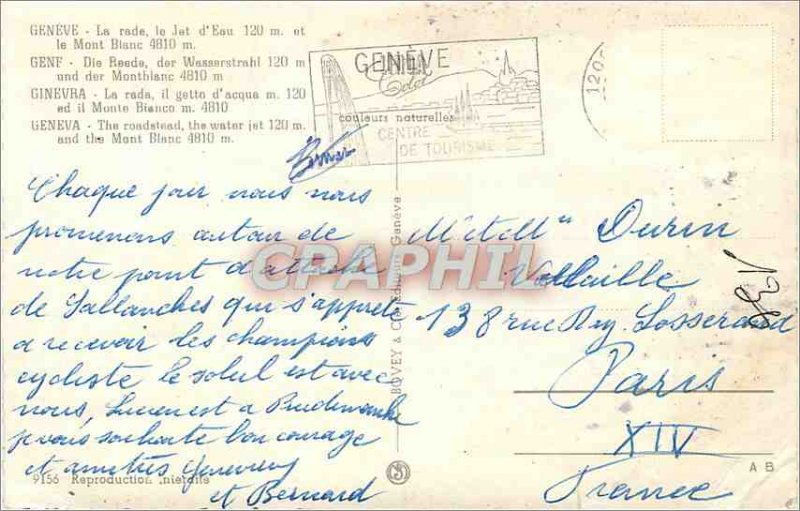 GENÈVE - La rade, le Jet d'Eau 120 m. et
le Mont Blanc 4810 m.
GENF - Die Reede, der Wasserstrahl 120 m
und der Montblanc 4810 m
GINEVRA - La rada, il getto d'acqua m. 120
ed il Monte Bianco m. 4810
GENEVA - The roadstead, the water jet 120 m.
and the Mont Blanc 4810 m.
GENÈVE
couleurs naturelles
CENTRE
DE TOURISME
120
Chaque jour nous nous
promenons autour de
notre point d'attache
de Sallanches qui s'apprête
a recevoir les champions
cycliste le soleil est avec
nous, Lucien est a
je vous souhaite bon courage
et amitiés Genevieve
et Bernard
Durin
138 rue Ray. Losserand
Paris
XIV
France
BOVEY & Co Editeurs Genève
CPAPHIL
9156 Reproduction interdite
A B